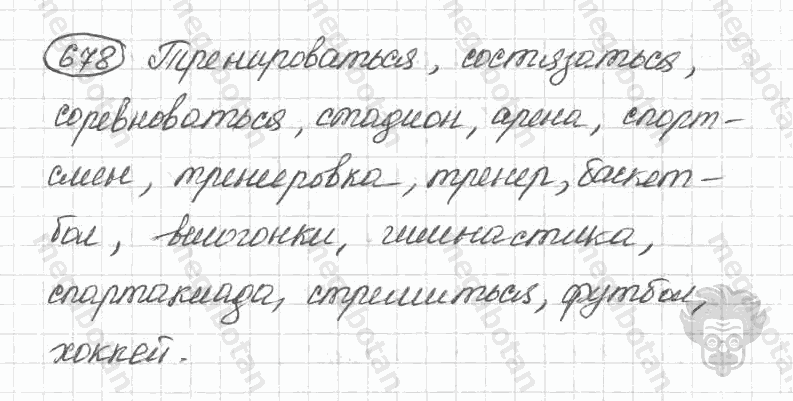 678 Тренироваться, состязаться,
соревноваться, стадион, арена, спорт-
смен, тренировка, тренер, баскет-
бол, велогонки, гимнастика,
спартакиада, стремиться, футбол,
хоккей.
megabotan